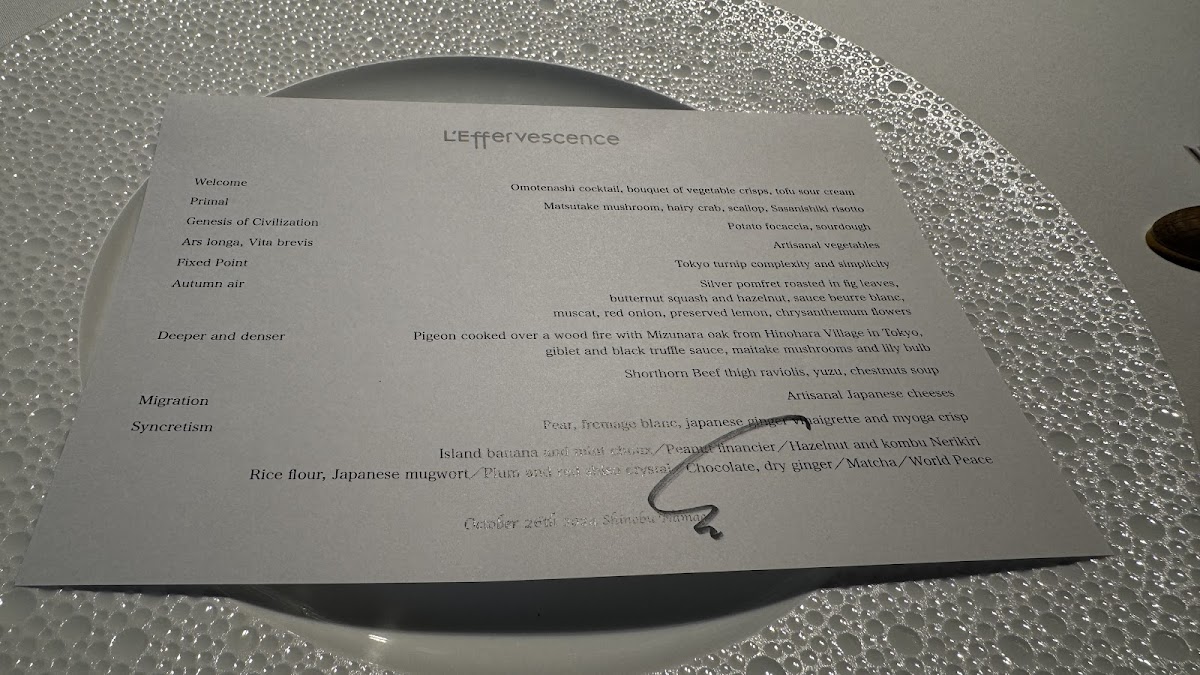 L'Effervescence
Welcome Omotenashi cocktail, bouquet of vegetable crisps, tofu sour cream
Primal Matsutake mushroom, hairy crab, scallop, Sasanishiki risotto
Genesis of Civilization Potato focaccia, sourdough
Ars longa, Vita brevis Artisanal vegetables
Fixed Point Tokyo turnip complexity and simplicity
Autumn air Silver pomfret roasted in fig leaves,
butternut squash and hazelnut, sauce beurre blanc,
muscat, red onion, preserved lemon, chrysanthemum flowers
Deeper and denser Pigeon cooked over a wood fire with Mizunara oak from Hinohara Village in Tokyo,
giblet and black truffle sauce, maitake mushrooms and lily bulb
Shorthorn Beef thigh raviolis, yuzu, chestnuts soup
Migration Artisanal Japanese cheeses
Syncretism Pear, fromage blanc, japanese ginger vinaigrette and myoga crisp
Island banana and mint choux/Peanut financier/Hazelnut and kombu Nerikiri
Rice flour, Japanese mugwort/Plum and red shiso crystal/Chocolate, dry ginger/Matcha/World Peace
October 26th Shinobu